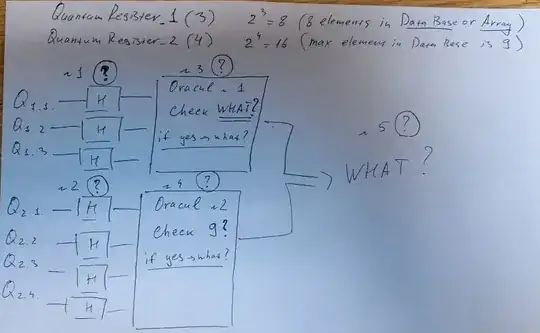 Quantum Register_1 (3) 2^3 = 8 (8 elements in Data Base or Array)
Quantum Register_2 (4) 2^4 = 16 (max element in Data Base is 9)
~1 ?
~3 ?
Q1.1. H
Q1.2 H
Q1.3 H
Oracul ~1
Check WHAT?
if yes → what?
~5 ?
WHAT?
~2 ?
~4 ?
Q2.1 H
Q2.2 H
Q2.3 H
Q2.4. H
Oracul ~2
Check 9?
if yes → what?